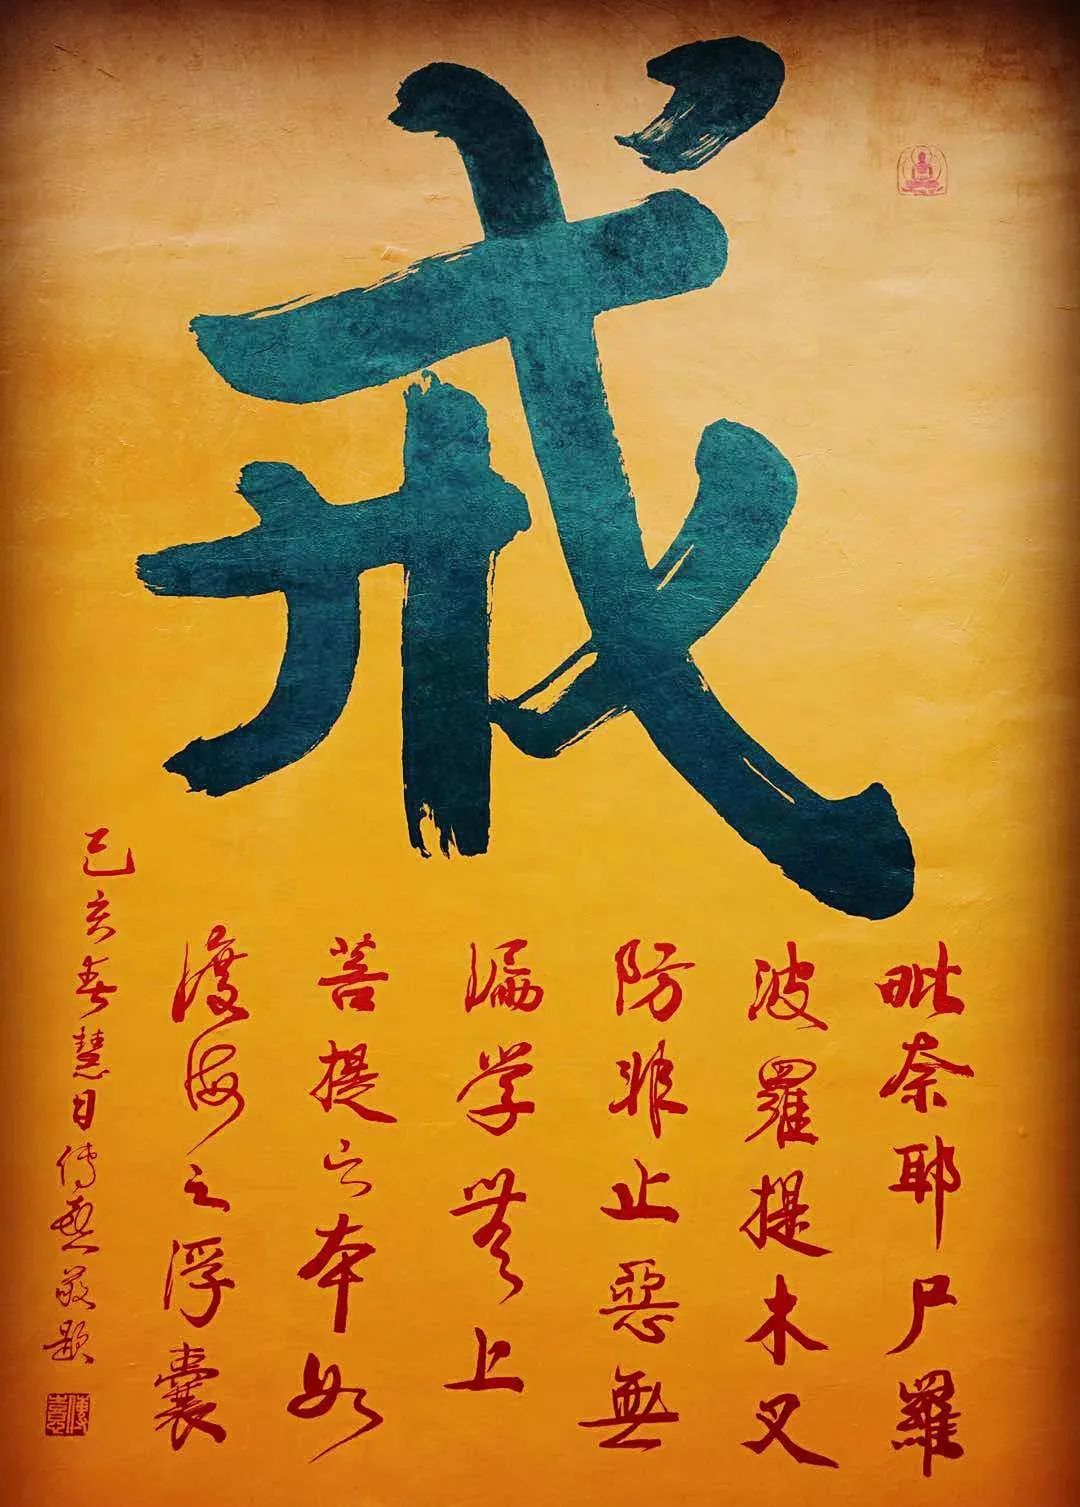 戒
毗奈耶尸羅
波羅提木叉
防非止惡無
漏学無上
菩提之本如
渡海之浮囊
己亥春慧日傳熹敬題